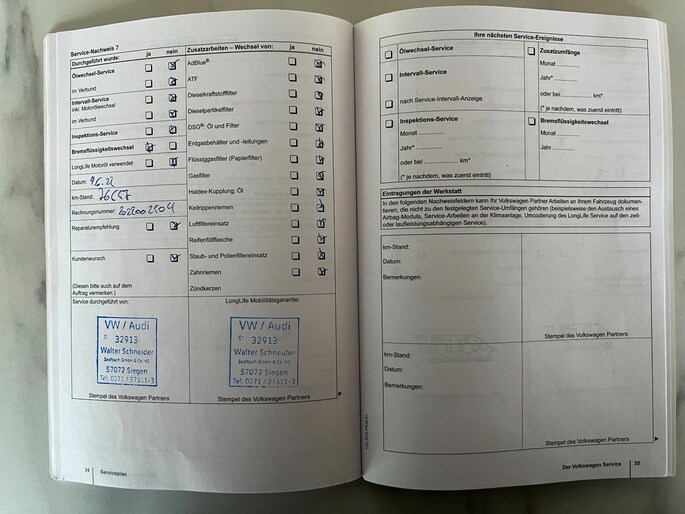 Service-Nachweis 7
Durchgeführt wurde: ja nein
Ölwechsel-Service
im Verbund
Intervall-Service
inkl. Motorölwechsel
im Verbund
Inspektions-Service
Bremsflüssigkeitswechsel
LongLife Motoröl verwendet
Datum:
km-Stand:
Rechnungsnummer:
Reparaturempfehlung
Kundenwunsch
(Diesen bitte auch auf dem
Auftrag vermerken.)
Zusatzarbeiten – Wechsel von: ja nein
AdBlue®
ATF
Dieselkraftstofffilter
Dieselpartikelfilter
DSG®: Öl und Filter
Erdgasbehälter und -leitungen
Flüssiggasfilter (Papierfilter)
Gasfilter
Haldex-Kupplung: Öl
Keilrippenriemen
Luftfiltereinsatz
Reifenfüllflasche
Staub- und Pollenfiltereinsatz
Zahnriemen
Zündkerzen
Service durchgeführt von:
VW / Audi
32913
Walter Schneider
57072 Siegen
Stempel des Volkswagen Partners
LongLife Mobilitätsgarantie:
VW / Audi
32913
Walter Schneider
57072 Siegen
Stempel des Volkswagen Partners
34 Serviceplan
Ihre nächsten Service-Ereignisse
Ölwechsel-Service
Intervall-Service
nach Service-Intervall-Anzeige
Zusatzumfänge
Monat
Jahr*
oder bei km*
(* je nachdem, was zuerst eintritt)
Inspektions-Service
Monat
Jahr*
oder bei km*
(* je nachdem, was zuerst eintritt)
Bremsflüssigkeitswechsel
Monat
Jahr
Eintragungen der Werkstatt
In den folgenden Nachweisfeldern kann Ihr Volkswagen Partner Arbeiten an Ihrem Fahrzeug dokumen-
tieren, die nicht zu den festgelegten Service-Umfängen gehören (beispielsweise den Austausch eines
Airbag-Moduls, Service-Arbeiten an der Klimaanlage, Umcodierung des LongLife Service auf den zeit-
oder laufleistungsabhängigen Service).
km-Stand:
Datum:
Bemerkungen:
Stempel des Volkswagen Partners
km-Stand:
Datum:
Bemerkungen:
Stempel des Volkswagen Partners
Der Volkswagen Service 35